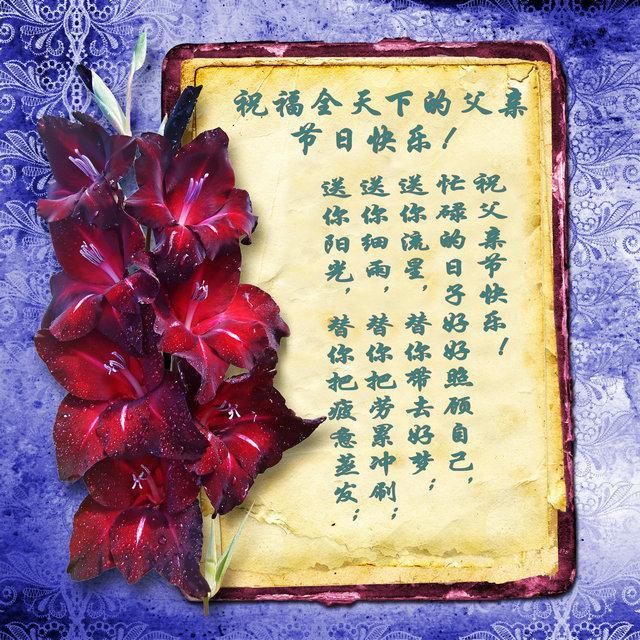 祝福全天下的父亲
节日快乐！
祝父亲节快乐！
忙碌的日子好好照顾自己，
送你流星，替你带去好梦；
送你细雨，替你把劳累冲刷；
送你阳光，替你把疲惫蒸发；